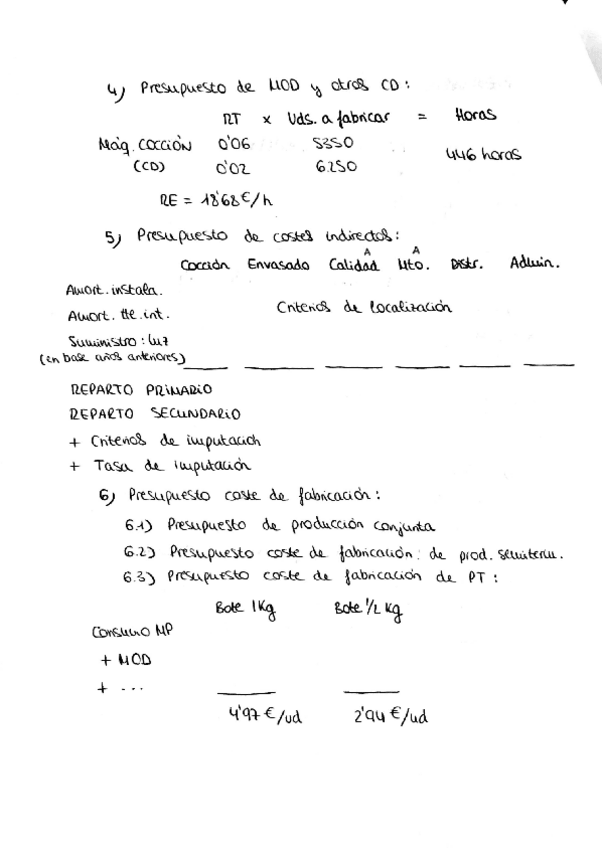 4) Presupuesto de MOD y otros CD:
RT x Uds. a fabricar = Horas
Máq. COCCIÓN 0'06 5350
446 horas
(CD) 0'02 6250
RE = 18'68€/h
5) Presupuesto de costes indirectos:
A A
Cocción Envasado Calidad Mto. Distr. Admin.
Amort. instala.
Criterios de localización
Amort. He. int.
Suministro: luz
(en base años anteriores)
REPARTO PRIMARIO
REPARTO SECUNDARIO
+ Criterios de imputación
+ Tasa de imputación
6) Presupuesto coste de fabricación:
6.1) Presupuesto de producción conjunta
6.2) Presupuesto coste de fabricación: de prod. semiterm.
6.3) Presupuesto coste de fabricación de PT:
Bote 1Kg Bote 1/2 Kg
Consumo MP
+ MOD
+ ...
4'97 €/ud 2'94 €/ud